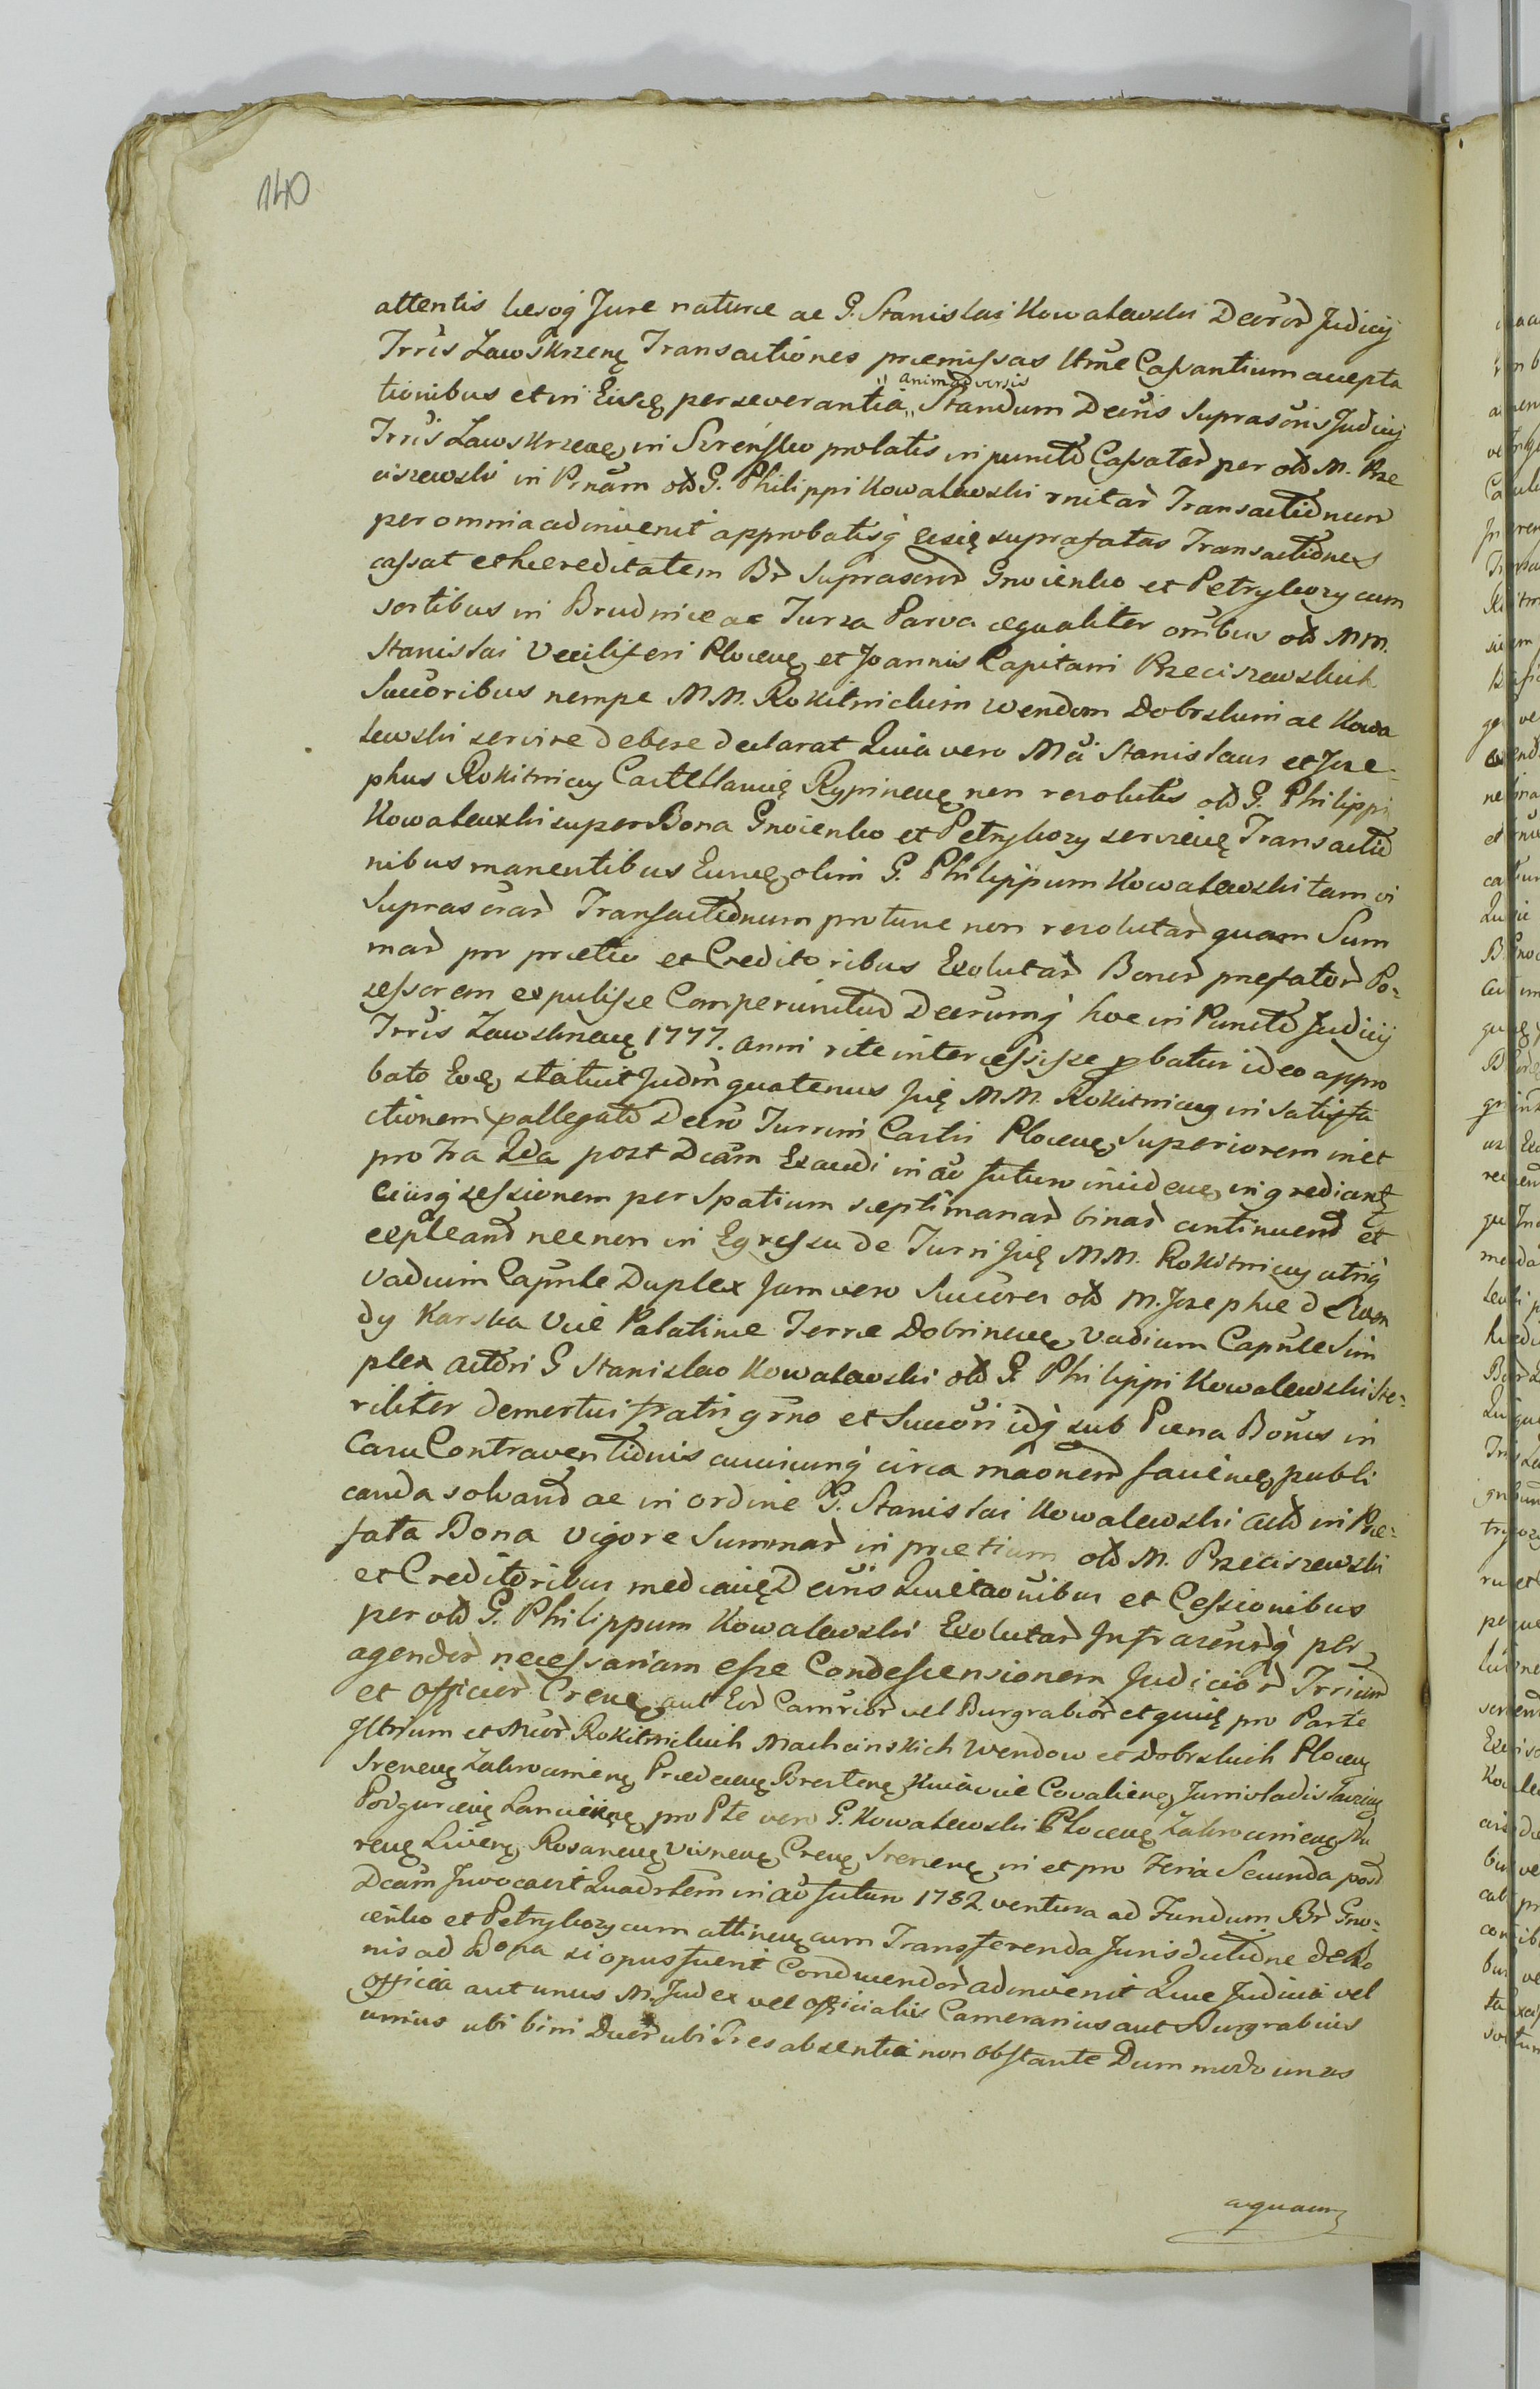 140
attentis hesoq Jure naturæ ac G. Stanislai Kowalewski Decror Judicij
Trris Zawskrzenę Transactiones præmissas Utme Cassantium accepta
tionibus et in Eiscę perseverantia „ animadversis „ Standum Decris suprascris Judicij
Trris Zawskrzenę in Szreńsko prolatis in puncto Cassatar per olo M. Prze
ciszewski in Prnam olo G. Philippi Kowalewski rnitar Transactionum
per omnia adinvenit approbatisq eisię suprafatas Transactiones
cassat et hæreditatem Br suprascror Gnoienko et Petrykozy cum
sortibus in Brudnice ac Turza Parva æqualiter omibus olo MM.
Stanislai Vexiliferi Plocenę et Joannis Capitani Przeciszewskich
Succoribus nempe MM. Rokitnickim Wendom Dobrskim ac Kowa
lewski servire debere declarat Quia vero Mci Stanislaus et Joze-
phus Rokitnicy Castellanię Rypinenę non resolutis olo G. Philippi
Kowalewski super Bona Gnoienko et Petrykozy servienę Transactio
nibus manentibus Eumę olim G. Philippum Kowalewski tam vi
Suprascrar Transactionum protunc non resolutar quam Sum
mar pro prætio et Creditoribus Exolutar Bonor præfator Po-
zessorem expulisse Comperiuntur Decrumq hoc in Puncto Judicij
Trris Zawskrzenę 1777. anni rite intercessisse pbatur ideo appro
bato Eoę statuit Judm quatenus Jię MM. Rokitnicy in satisfa
ctionem pallegati Decro Turrim Castri Plocenę Superiorem in et
pro Fra 2da post Dcam Exaudi in ao futuro incidenę ingrediantę
eiusq sessionem per spatium septimanar binar continuend et
expleand necnon in Egressu de Turri Jię MM. Rokitnicy utriq
vadium Capnle Duplex Jam vero Succores olo M. Jozephæ de Won
dy Karska Vice Palatinæ Terræ Dobrinenę Vadium Capnle Sim
plex actori G Stanislao Kowalewski olo G. Philippi Kowalewski Ste-
riliter demortui fratri grno et Succori idq sub Pæna Bonis in
Casu Contraventionis cuiuscunq circa maonem faciendę publi
canda solvand ac in ordine G. Stanislai Kowalewski acto in Præ-
fata Bona vigore Summar in prætium olo M. Przeciszewski
et Creditoribus medianę Decris Quietaonibus et Cessionibus
per olo G. Philippum Kowalewski Exolutar Infrascrorq per
agendor necessariam esse Condescensionem Judicior Trrium
et officior Crenę aut Eor Camrior vel Burgrabior et quię pro Parte
Jltrium et Mcor Rokitnickich Machcinskich Wendow et Dobrskich Plocenę
Srenenę Zakrocimenę Prædecenę Brestenę Kuiaviæ Covaliene Junivladislavienę
Podgurcenię Lanciienę pro Pte vero G. Kowalewski Plocenę Zakrocimenę Nu
renę Livenę Rosanenę Visnenę Crenę Srenenę in et pro Feria Secunda post
Dcam Invocavit Quadrlem in ao futuro 1782. ventura ad Fundum Br Gno-
ienko et Petrykozy cum attinenę cum Transferenda Jurisdictione de Bo
nis ad Bona si opus fuerit Conducendor adinvenit Quæ Judicia vel
officia aut unus M. Judex vel officialis Cameranius aut Burgrabius
unius ubi bini Duor ubi Tres absentia non obstante Dum modo unus
æquam